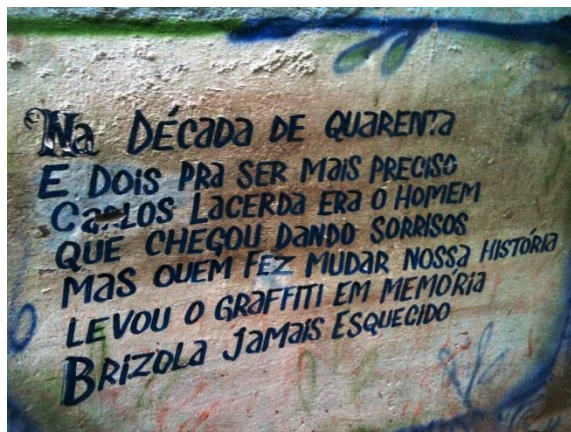 Na DÉCaDa DE QUARENTa
E DOiS PRa SER MaiS PRECiSO
CaRLOS LaCERDa ERa O HOMEM
QUE CHEGOU DaNDO SORRISOS
MaS QUEM FEZ MUDaR NOSSa HiSTÓRia
LEVOU O GRaFFiTi EM MEMÓRia
BRiZOLa JaMaiS ESQUECiDO